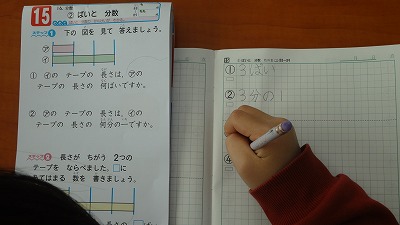 15
② ばいと 分数
ステップ 1 下の 図を 見て 答えましょう。
㋐
㋑
① ㋑の テープの 長さは、㋐の
テープの 長さの 何ばいですか。
② ㋐の テープの 長さは、㋑の
テープの 長さの 何分の一ですか。
長さが ちがう 2つの
テープを ならべました。□に
てはまる 数を 書きましょう。
長さの
① 3ばい
② 3分の1
④